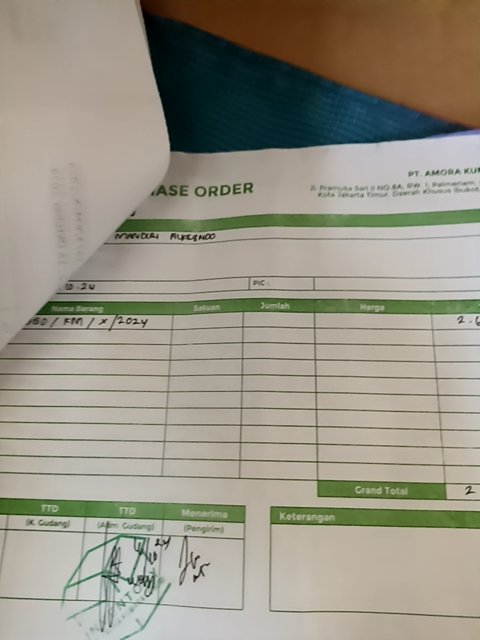 PT. AMORA KU
HASE ORDER
Jl. Pramuka Sari II NO.8A, RW. 1, Palmeriam,
Kota Jakarta Timur, Daerah Khusus Ibukot
MANDIRI
10.24
PIC :
Nama Barang Satuan Jumlah Harga
/ KM / X / 2024 2.6
Grand Total 2
TTD TTD Menerima
(K. Gudang) (Adm. Gudang) (Pengirim)
Keterangan